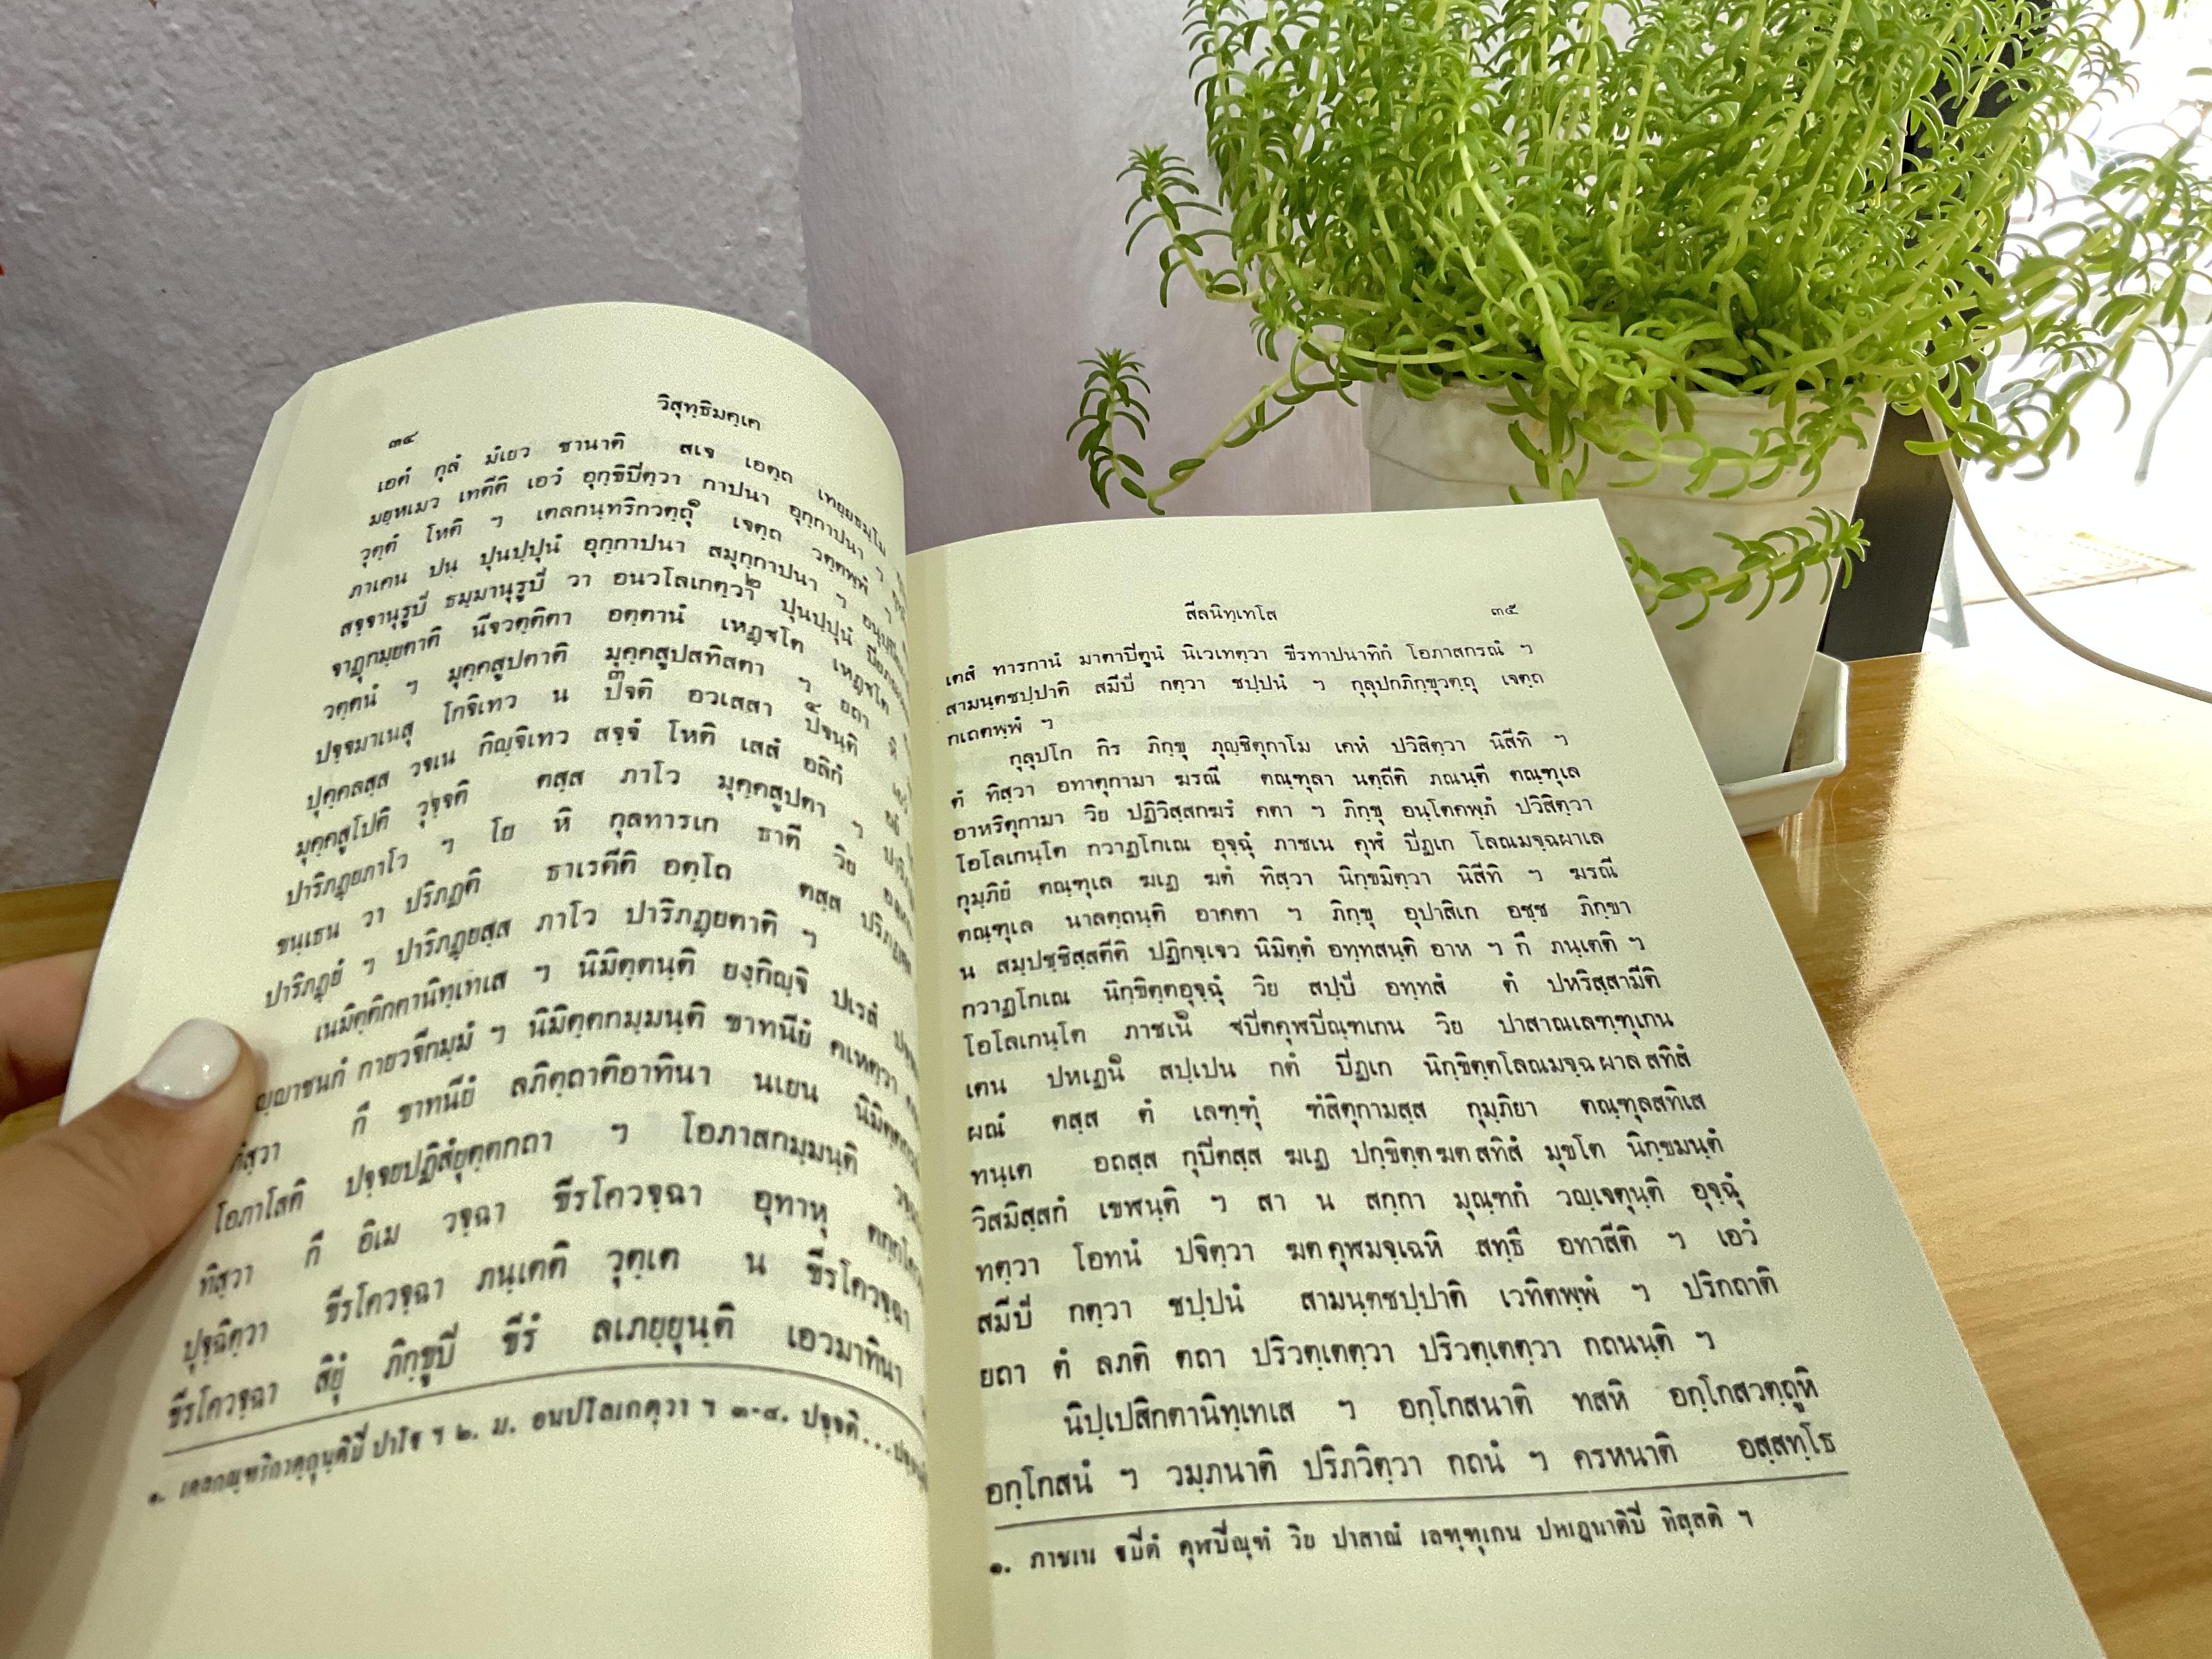 ๓๔
วิสุทฺธิมคฺเค
เอตํ กุลํ มํเยว ชานาติ สเจ เอตฺถ เทยฺยธมฺโม
มยฺหเมว เทตีติ เอวํ อุกฺขิปิตฺวา กาปนา อุกฺกาปนา ฯ
วุตฺตํ โหติ ฯ เตลกนฺทริกวตฺถุํ เจตฺถ วตฺตพฺพํ ฯ
ภาเคน ปน ปุนปฺปุนํ อุกฺกาปนา สมุกฺกาปนา ฯ
สจฺจานุรูปํ ธมฺมานุรูปํ วา อนวโลเกตฺวา๒ ปุนปฺปุนํ
จาฏุกมฺยตาติ นีจวตฺติตา อตฺตานํ เหฏฺฐโต เหฏฺฐโต
วตฺตนํ ฯ มุคฺคสูปตาติ มุคฺคสูปสทิสตา ฯ ยถา หิ
ปจฺจมาเนสุ โกจิเทว น ปจติ อวเสสา ปจนฺติ
ปุคฺคลสฺส วจเน กิญฺจิเทว สจฺจํ โหติ เสสํ อลิกํ
มุคฺคสูโปติ วุจฺจติ ตสฺส ภาโว มุคฺคสูปตา ฯ
ปาริภฏฺยภาโว ฯ โย หิ กุลทารเก ธาตี วิย
ขนฺเธน วา ปริภฏติ ธาเรตีติ อตฺโถ ตสฺส
ปาริภฏฺยํ ฯ ปาริภฏฺยสฺส ภาโว ปาริภฏฺยตาติ ฯ
เนมิตฺติกตานิทฺเทเส ฯ นิมิตฺตนฺติ ยงฺกิญฺจิ ปเรสํ
กายวจีกมฺมํ ฯ นิมิตฺตกมฺมนฺติ ขาทนียํ คเหตฺวา
กึ ขาทนียํ ลภิตฺถาติอาทินา นเยน
โอภาโสติ ปจฺจยปฏิสํยุตฺตกถา ฯ โอภาสกมฺมนฺติ
ทิสฺวา กึ อิเม วจฺฉา ขีรโควจฺฉา อุทาหุ
ปุจฺฉิตฺวา ขีรโควจฺฉา ภนฺเตติ วุตฺเต น ขีรโควจฺฉา
ขีรโควจฺฉา สิยุํ ภิกฺขูปิ ขีรํ ลเภยฺยุนฺติ เอวมาทินา
๑. เตลกณฺฑริกวตฺถุนฺติปิ ปาโฐ ฯ ๒. ม. อนปโลเกตฺวา ฯ ๓-๔. ปจฺจติ...
สีลนิทฺเทโส
๓๕
เตสํ ทารกานํ มาตาปิตูนํ นิเวเทตฺวา ขีรทาปนาทิกํ โอภาสกรณํ ฯ
สามนฺตชปฺปาติ สมีปํ กตฺวา ชปฺปนํ ฯ กุลุปกภิกฺขุวตฺถุ เจตฺถ
กเถตพฺพํ ฯ
กุลุปโก กิร ภิกฺขุ ภุญฺชิตุกาโม เคหํ ปวิสิตฺวา นิสีทิ ฯ
ตํ ทิสฺวา อทาตุกามา ฆรณี ตณฺฑุลา นตฺถีติ ภณนฺตี ตณฺฑุเล
อาหริตุกามา วิย ปฏิวิสฺสกฆรํ คตา ฯ ภิกฺขุ อนฺโตคพฺภํ ปวิสิตฺวา
โอโลเกนฺโต กวาฏโกเณ อุจฺฉุํ ภาชเน คุฬํ ปีฏเก โลณมจฺฉผาเล
กุมฺภิยํ ตณฺฑุเล ฆเฏ ฆตํ ทิสฺวา นิกฺขมิตฺวา นิสีทิ ฯ ฆรณี
ตณฺฑุเล นาลตฺถนฺติ อาคตา ฯ ภิกฺขุ อุปาสิเก อชฺช ภิกฺขา
น สมฺปชฺชิสฺสตีติ ปฏิกจฺเจว นิมิตฺตํ อทฺทสนฺติ อาห ฯ กึ ภนฺเตติ ฯ
กวาฏโกเณ นิกฺขิตฺตอุจฺฉุํ วิย สปฺปํ อทฺทสํ ตํ ปหริสฺสามีติ
โอโลเกนฺโต ภาชเน๑ ฐปิตคุฬปิณฺฑเกน วิย ปาสาณเลฑฺฑุเกน
เตน ปหเฏน๑ สปฺเปน กตํ ปีฏเก นิกฺขิตฺตโลณมจฺฉผาลสทิสํ
ผณํ ตสฺส ตํ เลฑฺฑุํ ฑํสิตุกามสฺส กุมฺภิยา ตณฺฑุลสทิเส
ทนฺเต อถสฺส กุปิตสฺส ฆเฏ ปกฺขิตฺตฆตสทิสํ มุขโต นิกฺขมนฺตํ
วิสมิสฺสกํ เขฬนฺติ ฯ สา น สกฺกา มุณฺฑกํ วญฺเจตุนฺติ อุจฺฉุํ
ทตฺวา โอทนํ ปจิตฺวา ฆตคุฬมจฺเฉหิ สทฺธึ อทาสีติ ฯ เอวํ
สมีปํ กตฺวา ชปฺปนํ สามนฺตชปฺปาติ เวทิตพฺพํ ฯ ปริกถาติ
ยถา ตํ ลภติ ตถา ปริวตฺเตตฺวา ปริวตฺเตตฺวา กถนนฺติ ฯ
นิปฺเปสิกตานิทฺเทเส ฯ อกฺโกสนาติ ทสหิ อกฺโกสวตฺถูหิ
อกฺโกสนํ ฯ วมฺภนาติ ปริภวิตฺวา กถนํ ฯ ครหนาติ อสฺสทฺโธ
๑. ภาชเน ฐปิตํ คุฬปิณฺฑํ วิย ปาสาณํ เลฑฺฑุเกน ปหเฏนาติปิ ทิสฺสติ ฯ